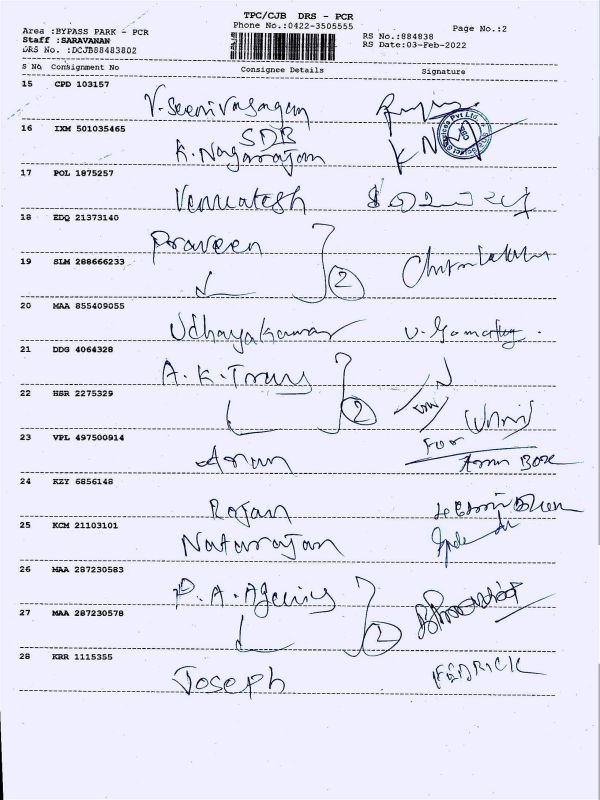 TPC/CJB DRS - PCR
Area :BYPASS PARK - PCR Phone No.:0422-3505555 Page No.:2
Staff :SARAVANAN RS No.:884838
DRS No. :DCJB88483802 RS Date:03-Feb-2022
S No Consignment No Consignee Details Signature
15 CPD 103157
V. Seenivasagam
16 IXM 501035465
SDB
K. Nagarajan
17 POL 1875257
Venkatesh
18 EDQ 21373140
Praveen
2
19 SLM 288666233
20 MAA 855409055
Udhayakumar
21 DDG 4064328
A. K. Trans
2
22 HSR 2275329
23 VPL 497500914
For
Arun
24 KZY 6856148
Rajan
25 KCM 21103101
Natarajan
26 MAA 287230583
P. A. Agencies
2
27 MAA 287230578
28 KRR 1115355
Joseph FEDRICK